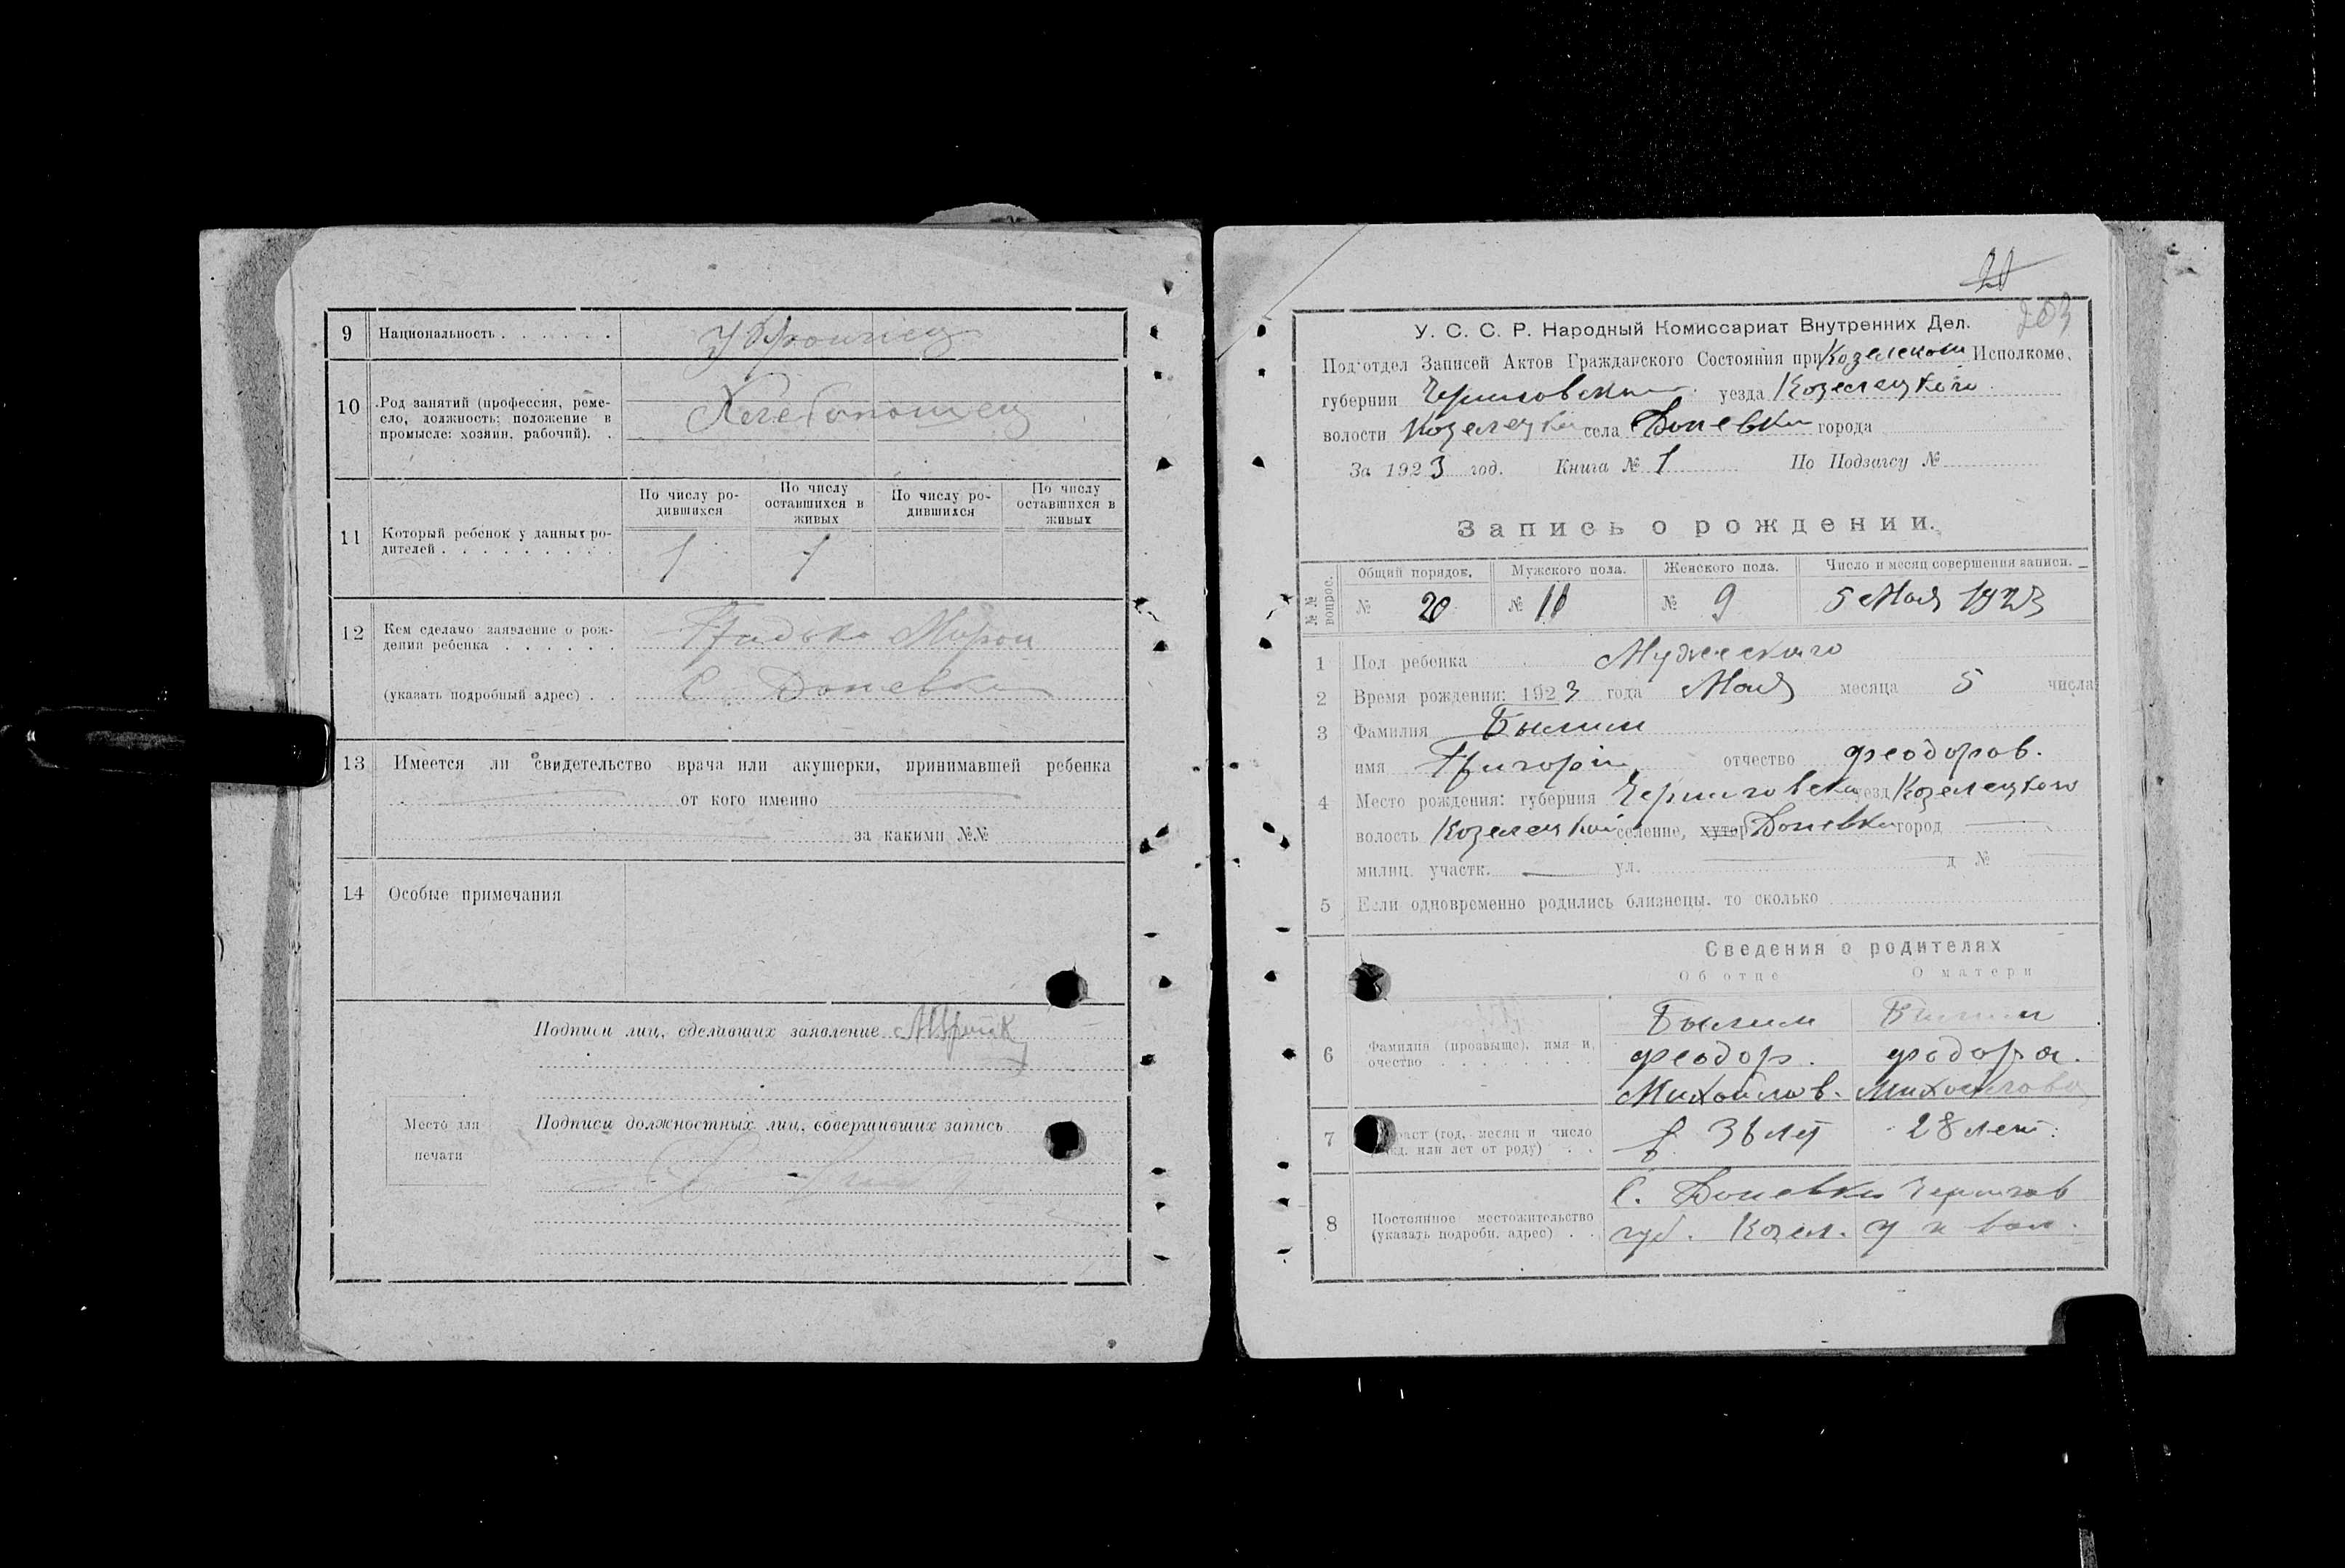 9 Национальность . . . . . . . Украинец
10 Род занятий (профессия, реме-
сло, должность: положение в
промысле: хозяин, рабочий). . Хлебопашец
По числу ро-
дившихся
По числу
оставшихся в
живых
По числу ро-
дившихся
По числу
оставшихся в
живых
11 Который ребенок у данных ро-
дителей . . . . . . . . . . 1 1
12 Кем сделано заявление о рож-
дении ребенка . . . . . . Мирон
(указать подробный адрес) . . С Даневка
13 Имеется ли свидетельство врача или акушерки, принимавшей ребенка
от кого именно
за какими №№
14 Особые примечания
Подписи лиц, сделавших заявление
Подписи должностных лиц, совершивших запись
Место для
печати
20
203
У. С. С. Р. Народный Комиссариат Внутренних Дел.
Под'отдел Записей Актов Гражданского Состояния при Козелецком Исполкоме,
губернии Черниговской уезда Козелецкого
волости Козелецкой села Даневки города
За 1923 год. Книга № 1 По Подзагсу №
Запись о рождении.
№№ вопрос. Общий порядок. Мужского пола. Женского пола. Число и месяц совершения записи.
№ 20 № 11 № 9 5 Мая 1923
1 Пол ребенка Мужескаго
2 Время рождения: 1923 года Мая месяца 5 числа
3 Фамилия
имя Григорій отчество Феодоров.
4 Место рождения: губерния Черниговской уезд Козелецкого
волость Козелецкой селение, хутор Даневки город
милиц. участк. ул. д №
5 Если одновременно родились близнецы, то сколько
Сведения о родителях
Об отце О матери
6 Фамилия (прозвыще), имя и
очество . . . . . . .
Феодор. Федора.
Михайлов. Михайлова
7 Возраст (год, месяц и число
рожд. или лет от роду) . . 36 лет 28 лет.
8 Постоянное местожительство
(указать подробн. адрес) . .
С. Даневки Чернигов
губ. Козел. у и вол.